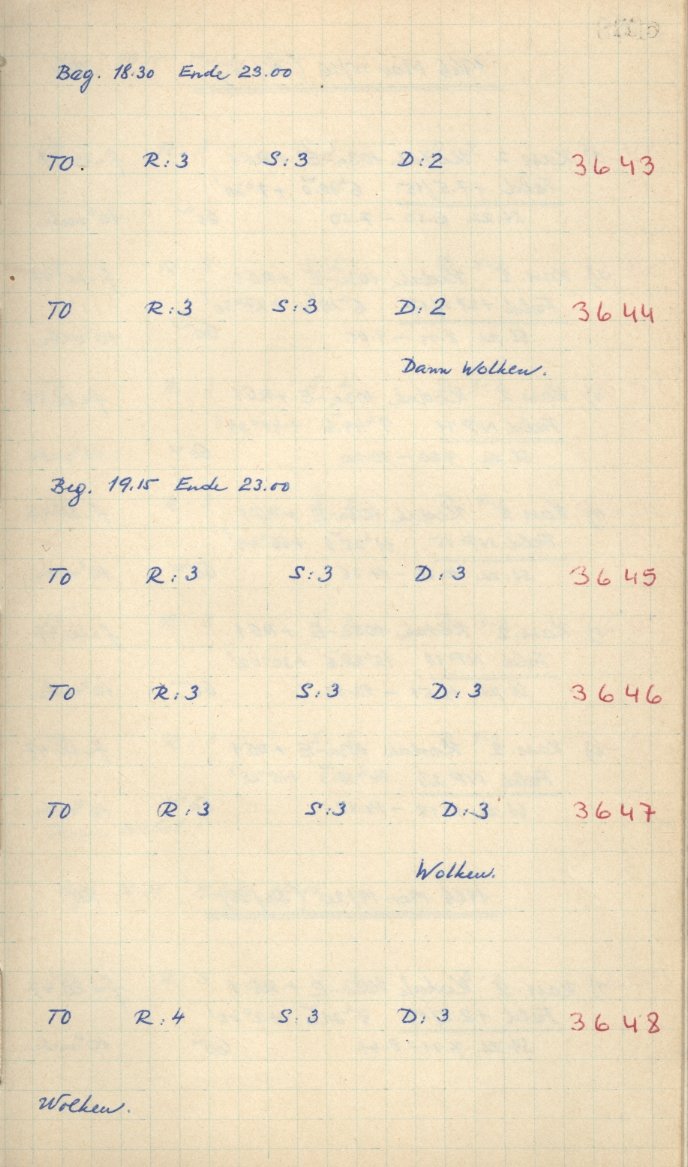 Beg. 18.30 Ende 23.00
TO. R:3 S:3 D:2 3643
TO R:3 S:3 D:2 3644
Dann Wolken.
Beg. 19.15 Ende 23.00
TO R:3 S:3 D:3 3645
TO R:3 S:3 D:3 3646
TO R:3 S:3 D:3 3647
Wolken.
TO R:4 S:3 D:3 3648
Wolken.